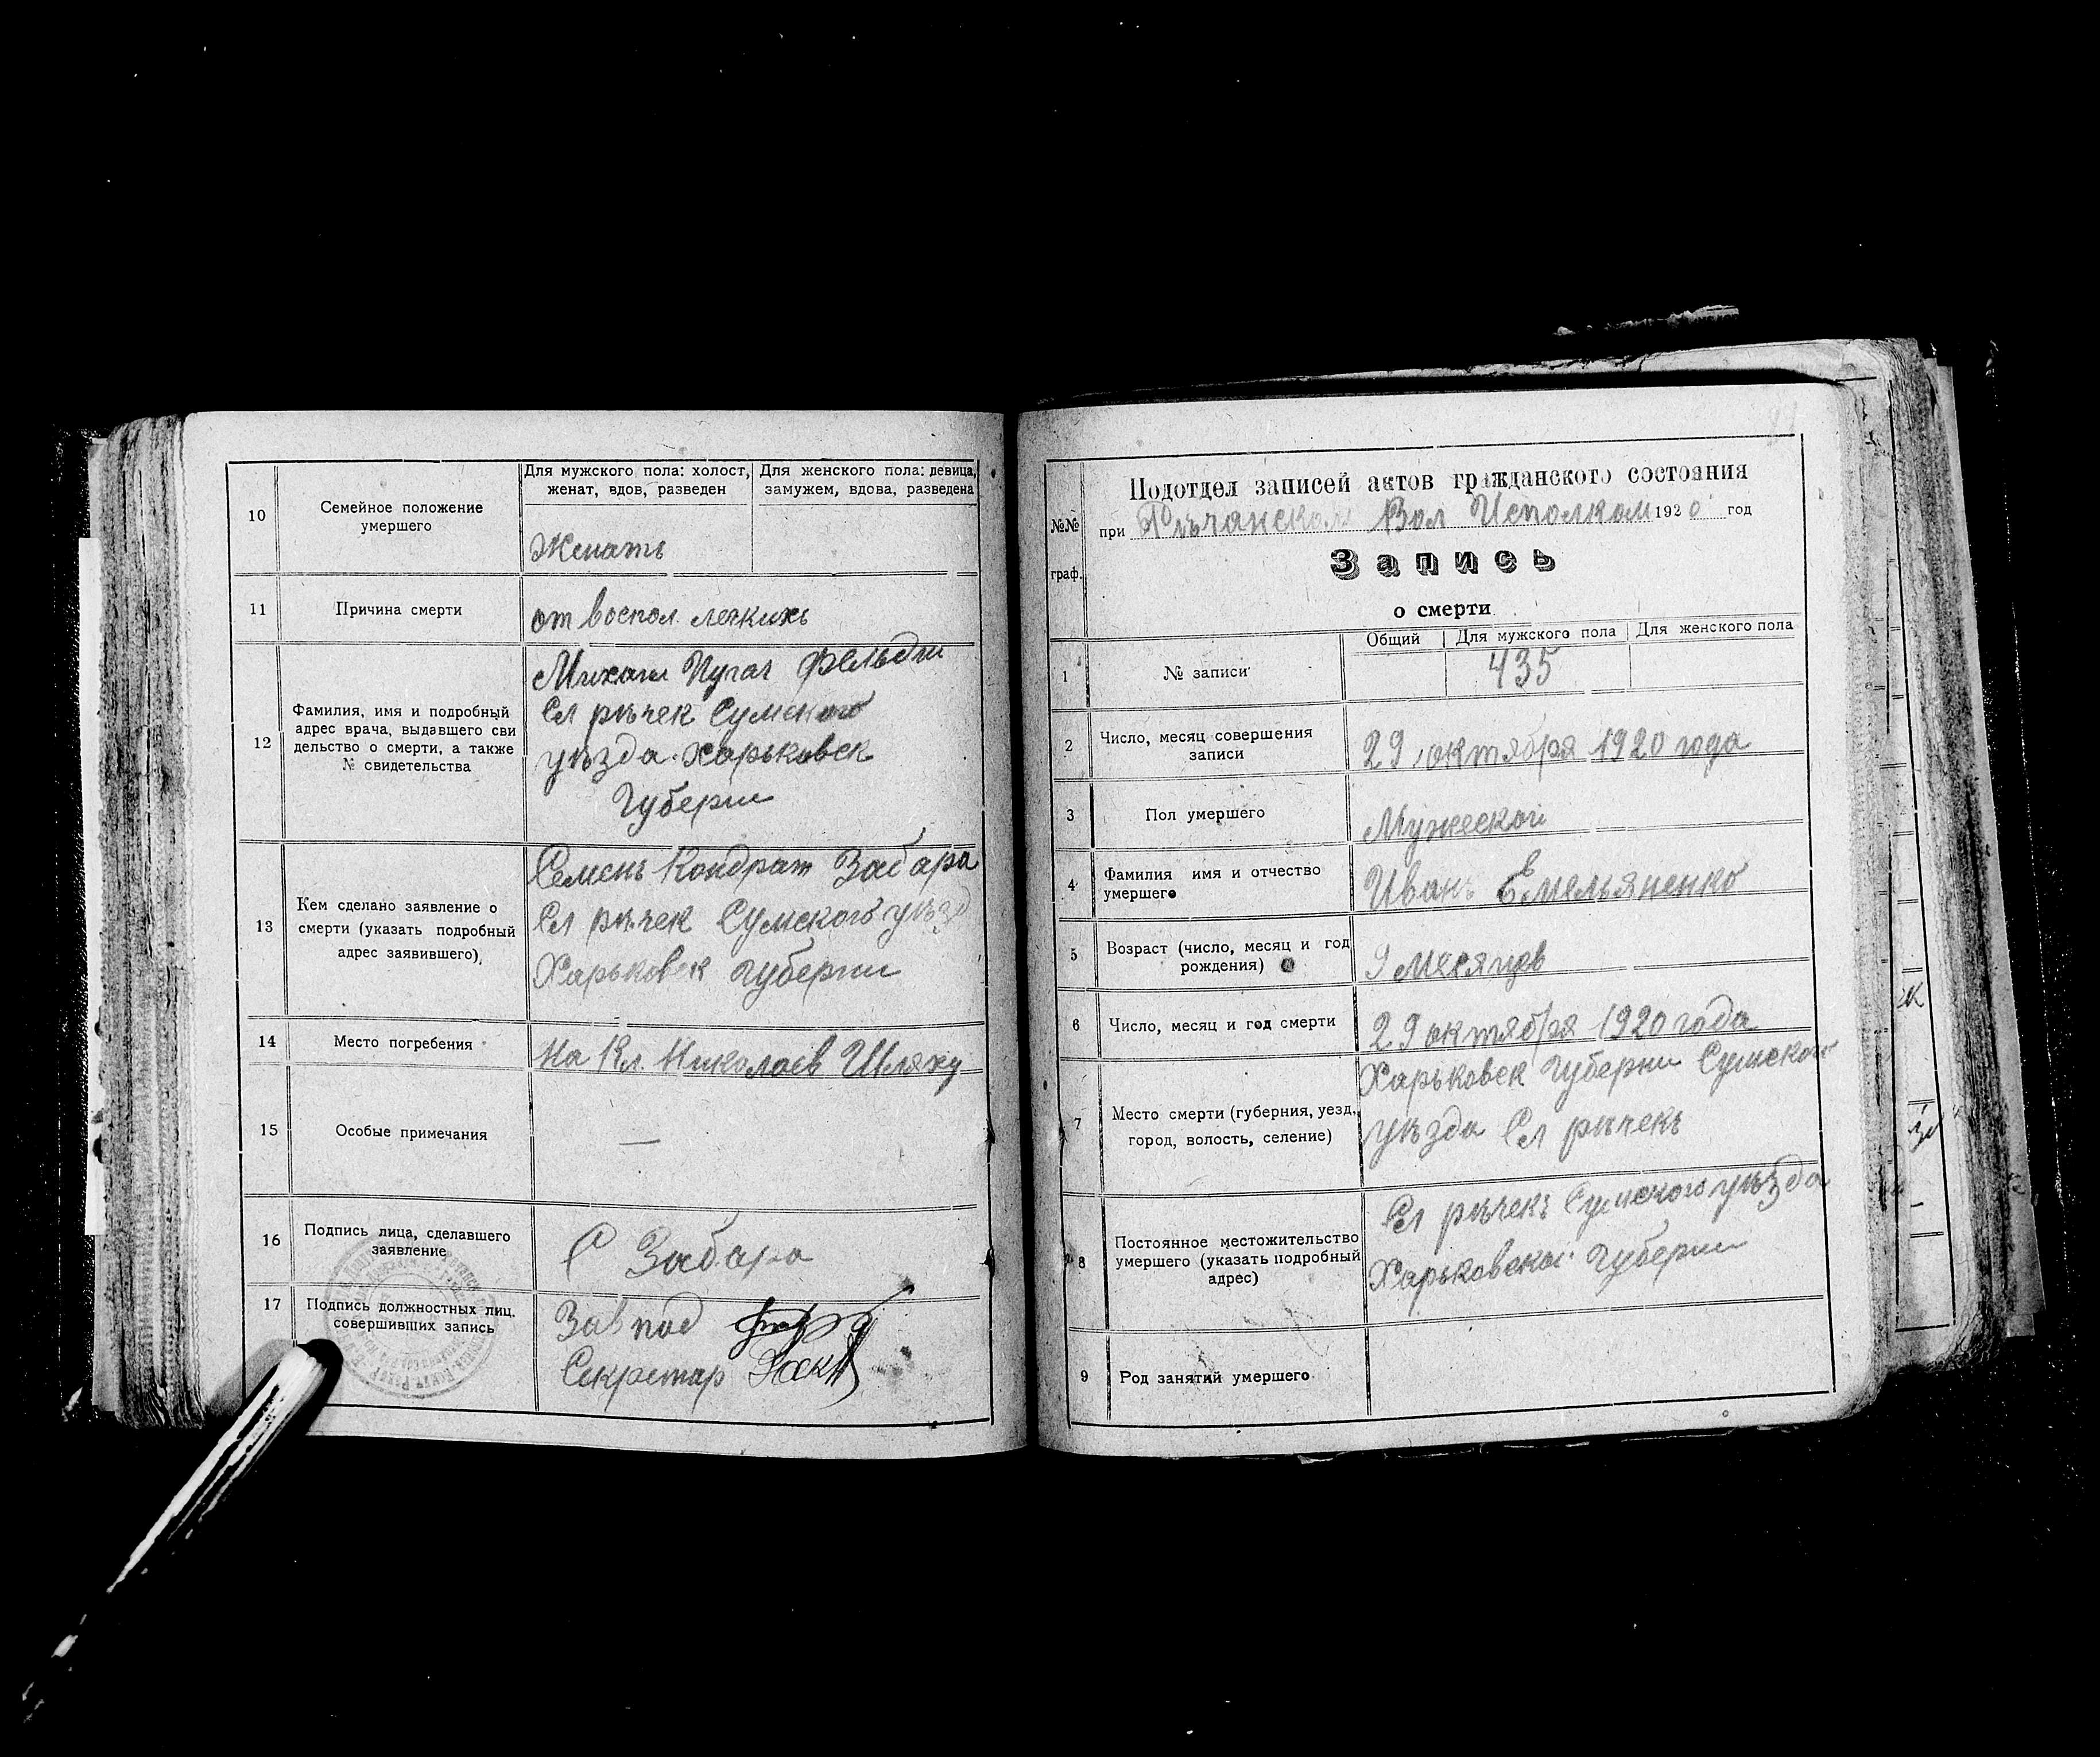 10
Семейное положение
умершего
Для мужского пола: холост,
женат, вдов, разведен
Для женского пола: девица,
замужем, вдова, разведена
Женатъ
11
Причина смерти
от воспол легкихъ
12
Фамилия, имя и подробный
адрес врача, выдавшего сви
дельство о смерти, а также
№ свидетельства
Михаил Пугач Фельдш
Сл рѣчек Сумского
уѣзда Харьковск
Губерни
13
Кем сделано заявление о
смерти (указать подробный
адрес заявившего)
Семенъ Кондрат Забара
Сл рѣчек Сумского уѣзд
Харьковск губерни
14
Место погребения
На Кл. Николаев Шляху
15
Особые примечания
—
16
Подпись лица, сделавшего
заявление
С Забара
17
Подпись должностных лиц,
совершивших запись
Завпод
Секретар
№№
граф.
Подотдел записей актов гражданского состояния
при Рѣчанском Вол Исполком 1920 год
Запись
о смерти
Общий
Для мужского пола
Для женского пола
1
№ записи
435
2
Число, месяц совершения
записи
29 октября 1920 года
3
Пол умершего
Мужеской
4
Фамилия имя и отчество
умершего
Иванъ Емельяненко
5
Возраст (число, месяц и год
рождения)
9 месяцев
6
Число, месяц и год смерти
29 октября 1920 года
7
Место смерти (губерния, уезд,
город, волость, селение)
Харьковск Губерни Сумского
уѣзда Сл рѣчекъ
8
Постоянное местожительство
умершего (указать подробный
адрес)
Сл рѣчекъ Сумского уѣзда
Харьковской Губерни
9
Род занятий умершего